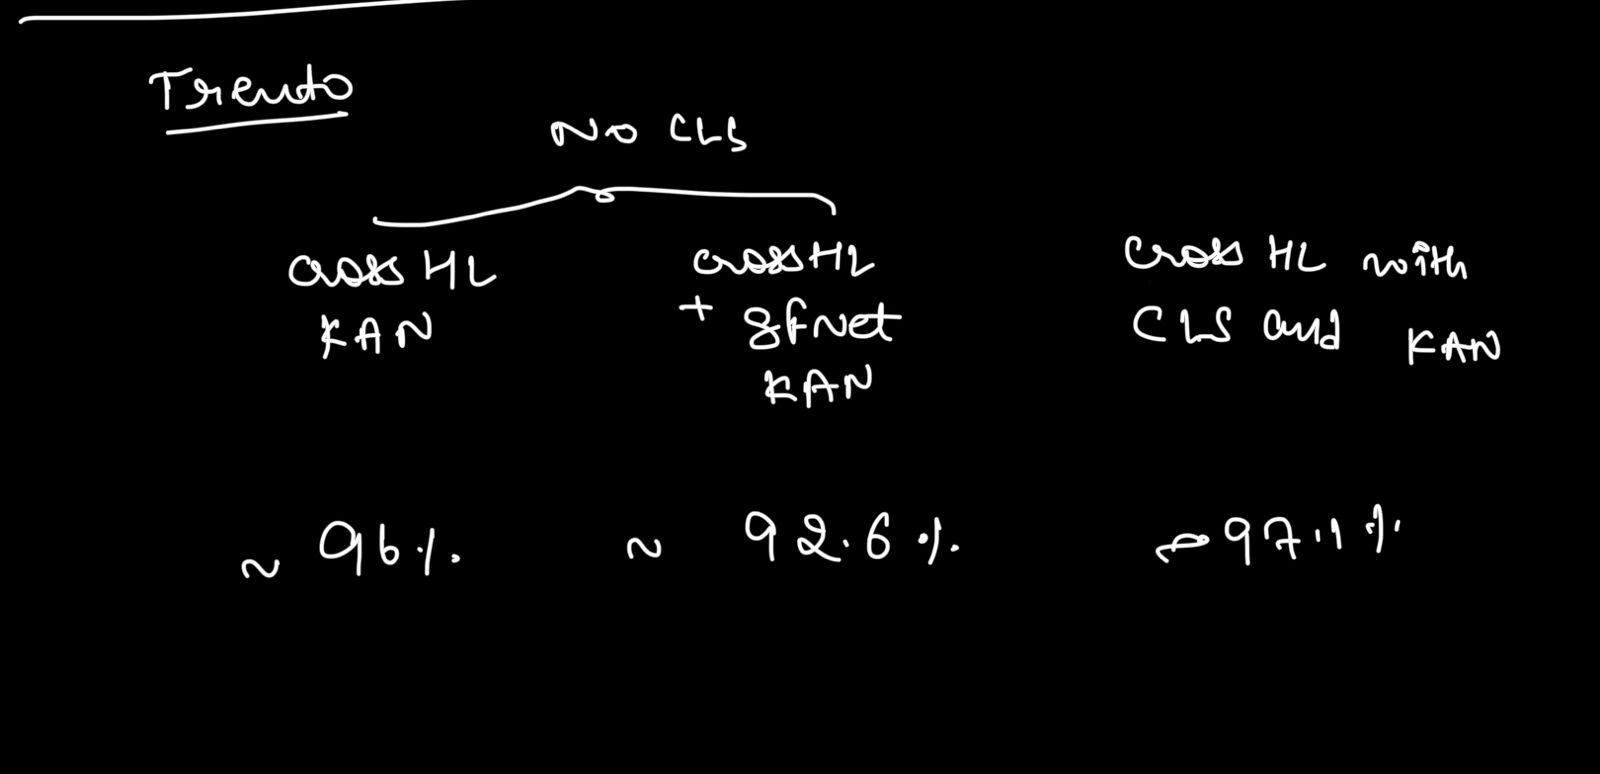 Trento
NO CLS
cross HL
KAN
cross HL
+ gfNet
KAN
cross HL with
CLS and KAN
~ 96%.
~ 92.6%.
~97.1%